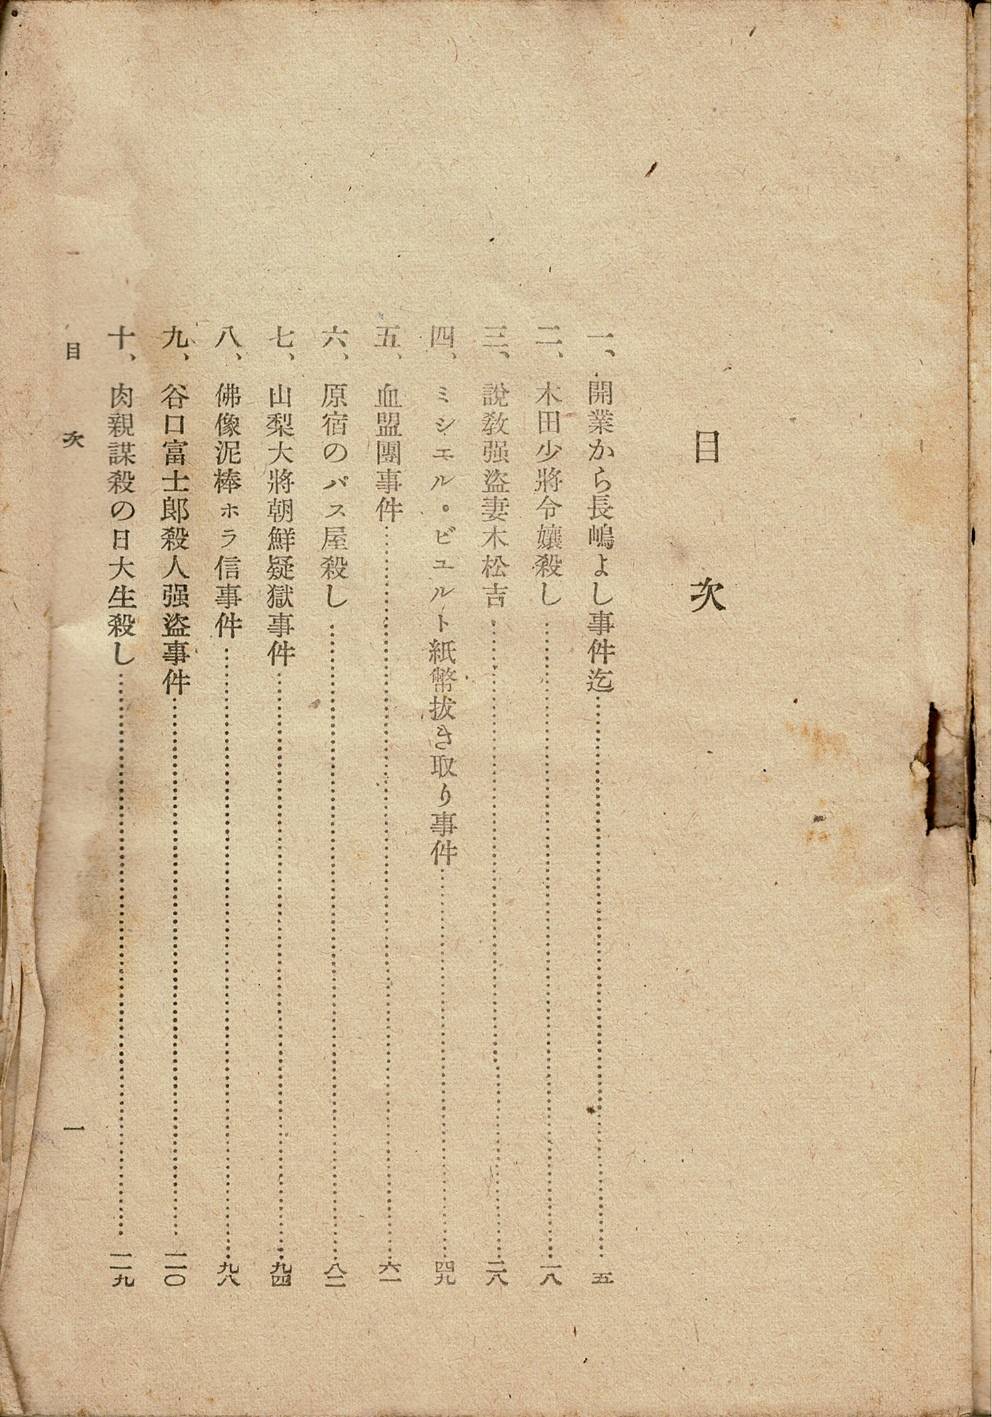 目次
一、開業から長嶋よし事件迄……………五
二、木田少將令孃殺し……………一八
三、說敎强盜妻木松吉……………二八
四、ミシエル・ビユルト紙幣拔き取り事件……………四九
五、血盟團事件……………六一
六、原宿のバス屋殺し……………八二
七、山梨大將朝鮮疑獄事件……………九四
八、佛像泥棒ホラ信事件……………九八
九、谷口富士郞殺人强盜事件……………一一〇
十、肉親謀殺の日大生殺し……………一一九
目次 一